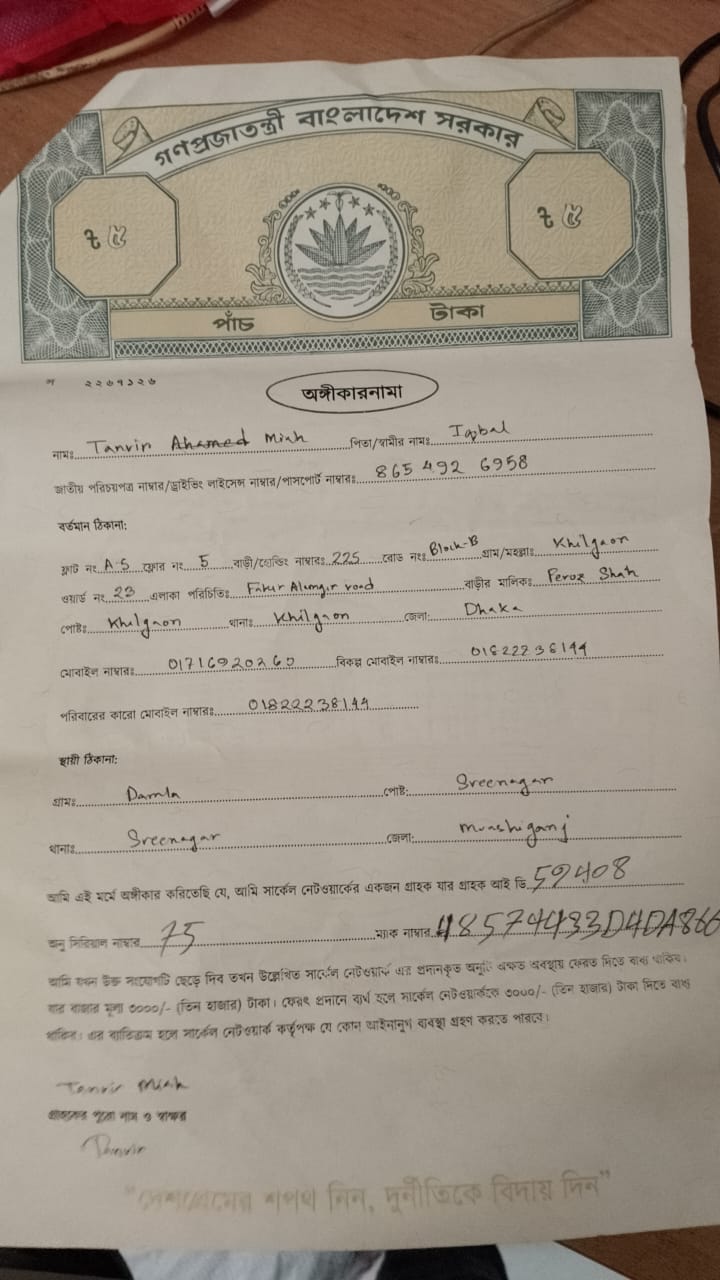 গণপ্রজাতন্ত্রী বাংলাদেশ সরকার
৳ ৫ ৳ ৫
পাঁচ টাকা
২২৬৭১২৬
অঙ্গীকারনামা
নামঃ Tanvir Ahamed Miah পিতা/স্বামীর নামঃ Iqbal
জাতীয় পরিচয়পত্র নাম্বার/ড্রাইভিং লাইসেন্স নাম্বার/পাসপোর্ট নাম্বারঃ 865 492 6958
বর্তমান ঠিকানা:
ফ্লাট নং A-5 ফ্লোর নং 5 বাড়ী/হোল্ডিং নাম্বারঃ 225 রোড নংঃ Block-B গ্রাম/মহল্লাঃ Khilgaon
ওয়ার্ড নং 23 এলাকা পরিচিতিঃ Alamgir road বাড়ীর মালিকঃ Peroz Shah
পোষ্টঃ Khilgaon থানাঃ Khilgaon জেলা: Dhaka
মোবাইল নাম্বারঃ বিকল্প মোবাইল নাম্বারঃ
পরিবারের কারো মোবাইল নাম্বারঃ 01822238144
স্থায়ী ঠিকানা:
গ্রামঃ Damla পোষ্ট: Sreenagar
থানাঃ Sreenagar জেলা: Munshiganj
আমি এই মর্মে অঙ্গীকার করিতেছি যে, আমি সার্কেল নেটওয়ার্কের একজন গ্রাহক যার গ্রাহক আই ডি 59408
অনু সিরিয়াল নাম্বার 75 ম্যাক নাম্বার
আমি যখন উক্ত সংযোগটি ছেড়ে দিব তখন উল্লেখিত সার্কেল নেটওয়ার্ক এর প্রদানকৃত অনুটি অক্ষত অবস্থায় ফেরত দিতে বাধ্য থাকিব।
যার বাজার মূল্য ৩০০০/- (তিন হাজার) টাকা। ফেরৎ প্রদানে ব্যর্থ হলে সার্কেল নেটওয়ার্ককে ৩০০০/- (তিন হাজার) টাকা দিতে বাধ্য
থাকিব। এর ব্যতিক্রম হলে সার্কেল নেটওয়ার্ক কর্তৃপক্ষ যে কোন আইনানুগ ব্যবস্থা গ্রহণ করতে পারবে।
Tanvir Miah
গ্রাহকের পুরো নাম ও স্বাক্ষর
Tanvir
"দেশপ্রেমের শপথ নিন, দুর্নীতিকে বিদায় দিন"